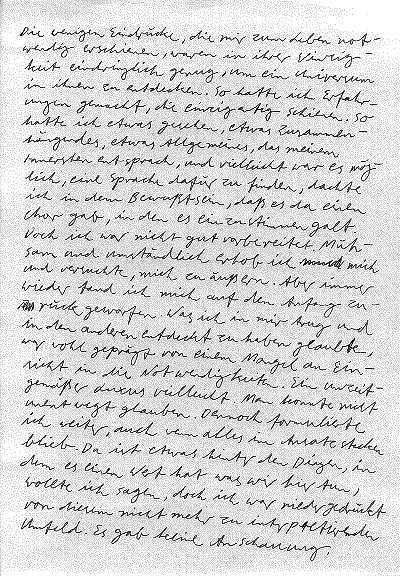 Die wenigen Eindrücke, die mir zum Leben not-
wendig erschienen, waren in ihrer Winzig-
keit eindringlich genug, um ein Universum
in ihnen zu entdecken. So hatte ich Erfahr-
ungen gemacht, die einzigartig schienen. So
hatte ich etwas gesehen, etwas Zusammen-
hängendes, etwas Allgemeines, das meinem
Innersten entsprach, und vielleicht war es mög-
lich, eine Sprache dafür zu finden, dachte
ich in dem Bewußtsein, daß es da einen
Chor gab, in den es einzustimmen galt.
Doch ich war nicht gut vorbereitet. Müh-
sam und umständlich erhob ich mich
und versuchte, mich zu äußern. Aber immer
wieder fand ich mich auf den Anfang zu-
rück geworfen. Was ich in mir trug und
in den anderen entdeckt zu haben glaubte,
war wohl geprägt von einem Mangel an Ein-
sicht in die Notwendigkeiten. Ein unzeit-
gemäßer Luxus vielleicht. Man konnte nicht
unentwegt glauben. Dennoch formulierte
ich weiter, auch wenn alles im Ansatz stecken
blieb. Da ist etwas hinter den Dingen, in
dem es einen Wert hat was wir hier tun,
wollte ich sagen, doch ich war niedergedrückt
von diesem nicht mehr zu interpretierenden
Umfeld. Es gab keine Anschauung.